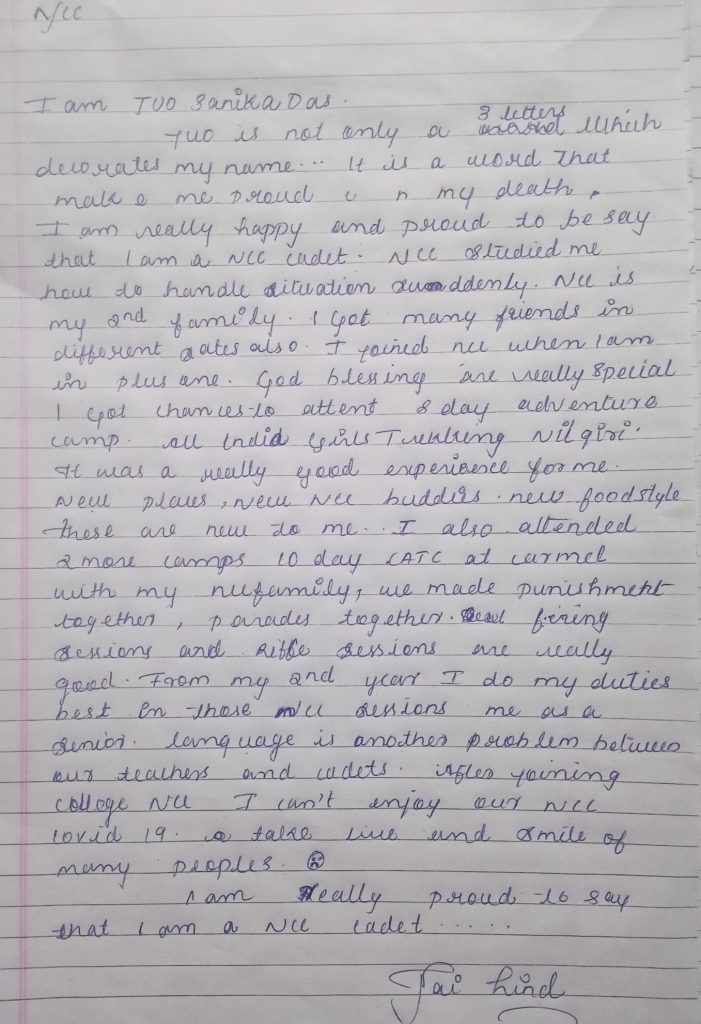 NCC
I am JUO Sanika Das.
JUO is not only a 3 letters which
decorates my name... It is a word that
make me proud n my death.
I am really happy and proud to be say
that I am a NCC cadet. NCC studied me
how to handle situation suddenly. NCC is
my 2nd family. I got many friends in
different gates also. I joined ncc when I am
in plus one. God blessing are really special
I got chances to attent 8 day adventure
camp. All India Girls Trekking Nilgiri.
It was a really good experience for me.
New places, new Ncc buddies. new foodstyle
these are new to me.. I also attended
2 more camps 10 day CATC at carmel
with my nccfamily, we made punishment
together, parades together. firing
sessions and sessions are really
good. From my 2nd year I do my duties
best in those ncc sessions me as a
senior. language is another problem between
our teachers and cadets. After joining
college NCC I can't enjoy our NCC
Covid 19. take live and smile of
many peoples. ☹
I am Really proud to say
that I am a NCC cadet.....
Jai hind